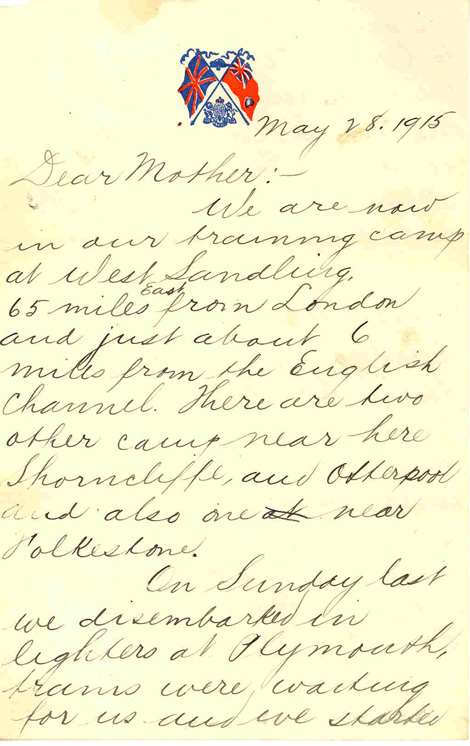 May 28. 1915
Dear Mother:-
We are now
in our training camp
at West Sandling,
65 miles East from London
and just about 6
miles from the English
Channel. There are two
other camp near here
Shorncliffe, and Otterpool
and also one at near
Folkestone.
On Sunday last
we disembarked in
lighters at Plymouth,
trains were waiting
for us and we started